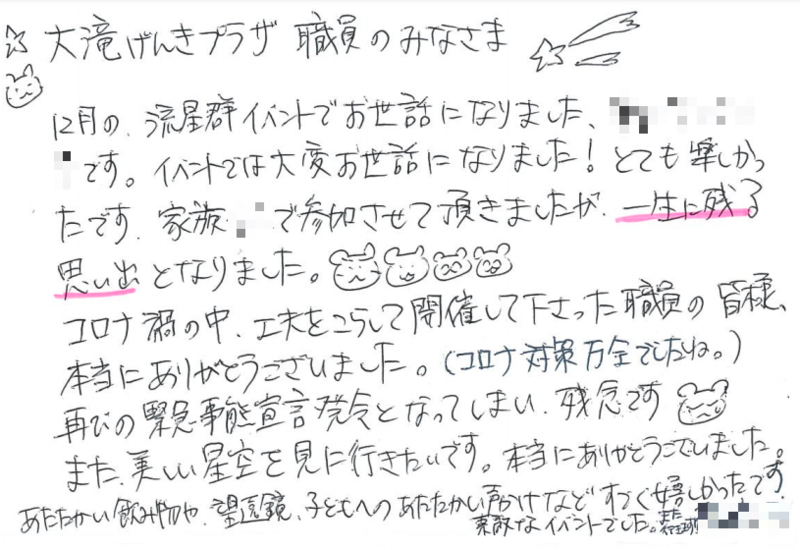 大滝げんきプラザ 職員のみなさま
12月の、流星群イベントでお世話になりました、
です。イベントでは大変お世話になりました！とても楽しかっ
たです。家族 で参加させて頂きましたが、一生に残る
思い出となりました。
コロナ禍の中、工夫をこらして開催して下さった職員の皆様、
本当にありがとうございました。（コロナ対策万全でしたね。）
再びの緊急事態宣言発令となってしまい、残念です
また、美しい星空を見に行きたいです。本当にありがとうございました。
あたたかい飲み物や、望遠鏡、子どもへのあたたかい声かけなどすごく嬉しかったです
素敵なイベントでした。